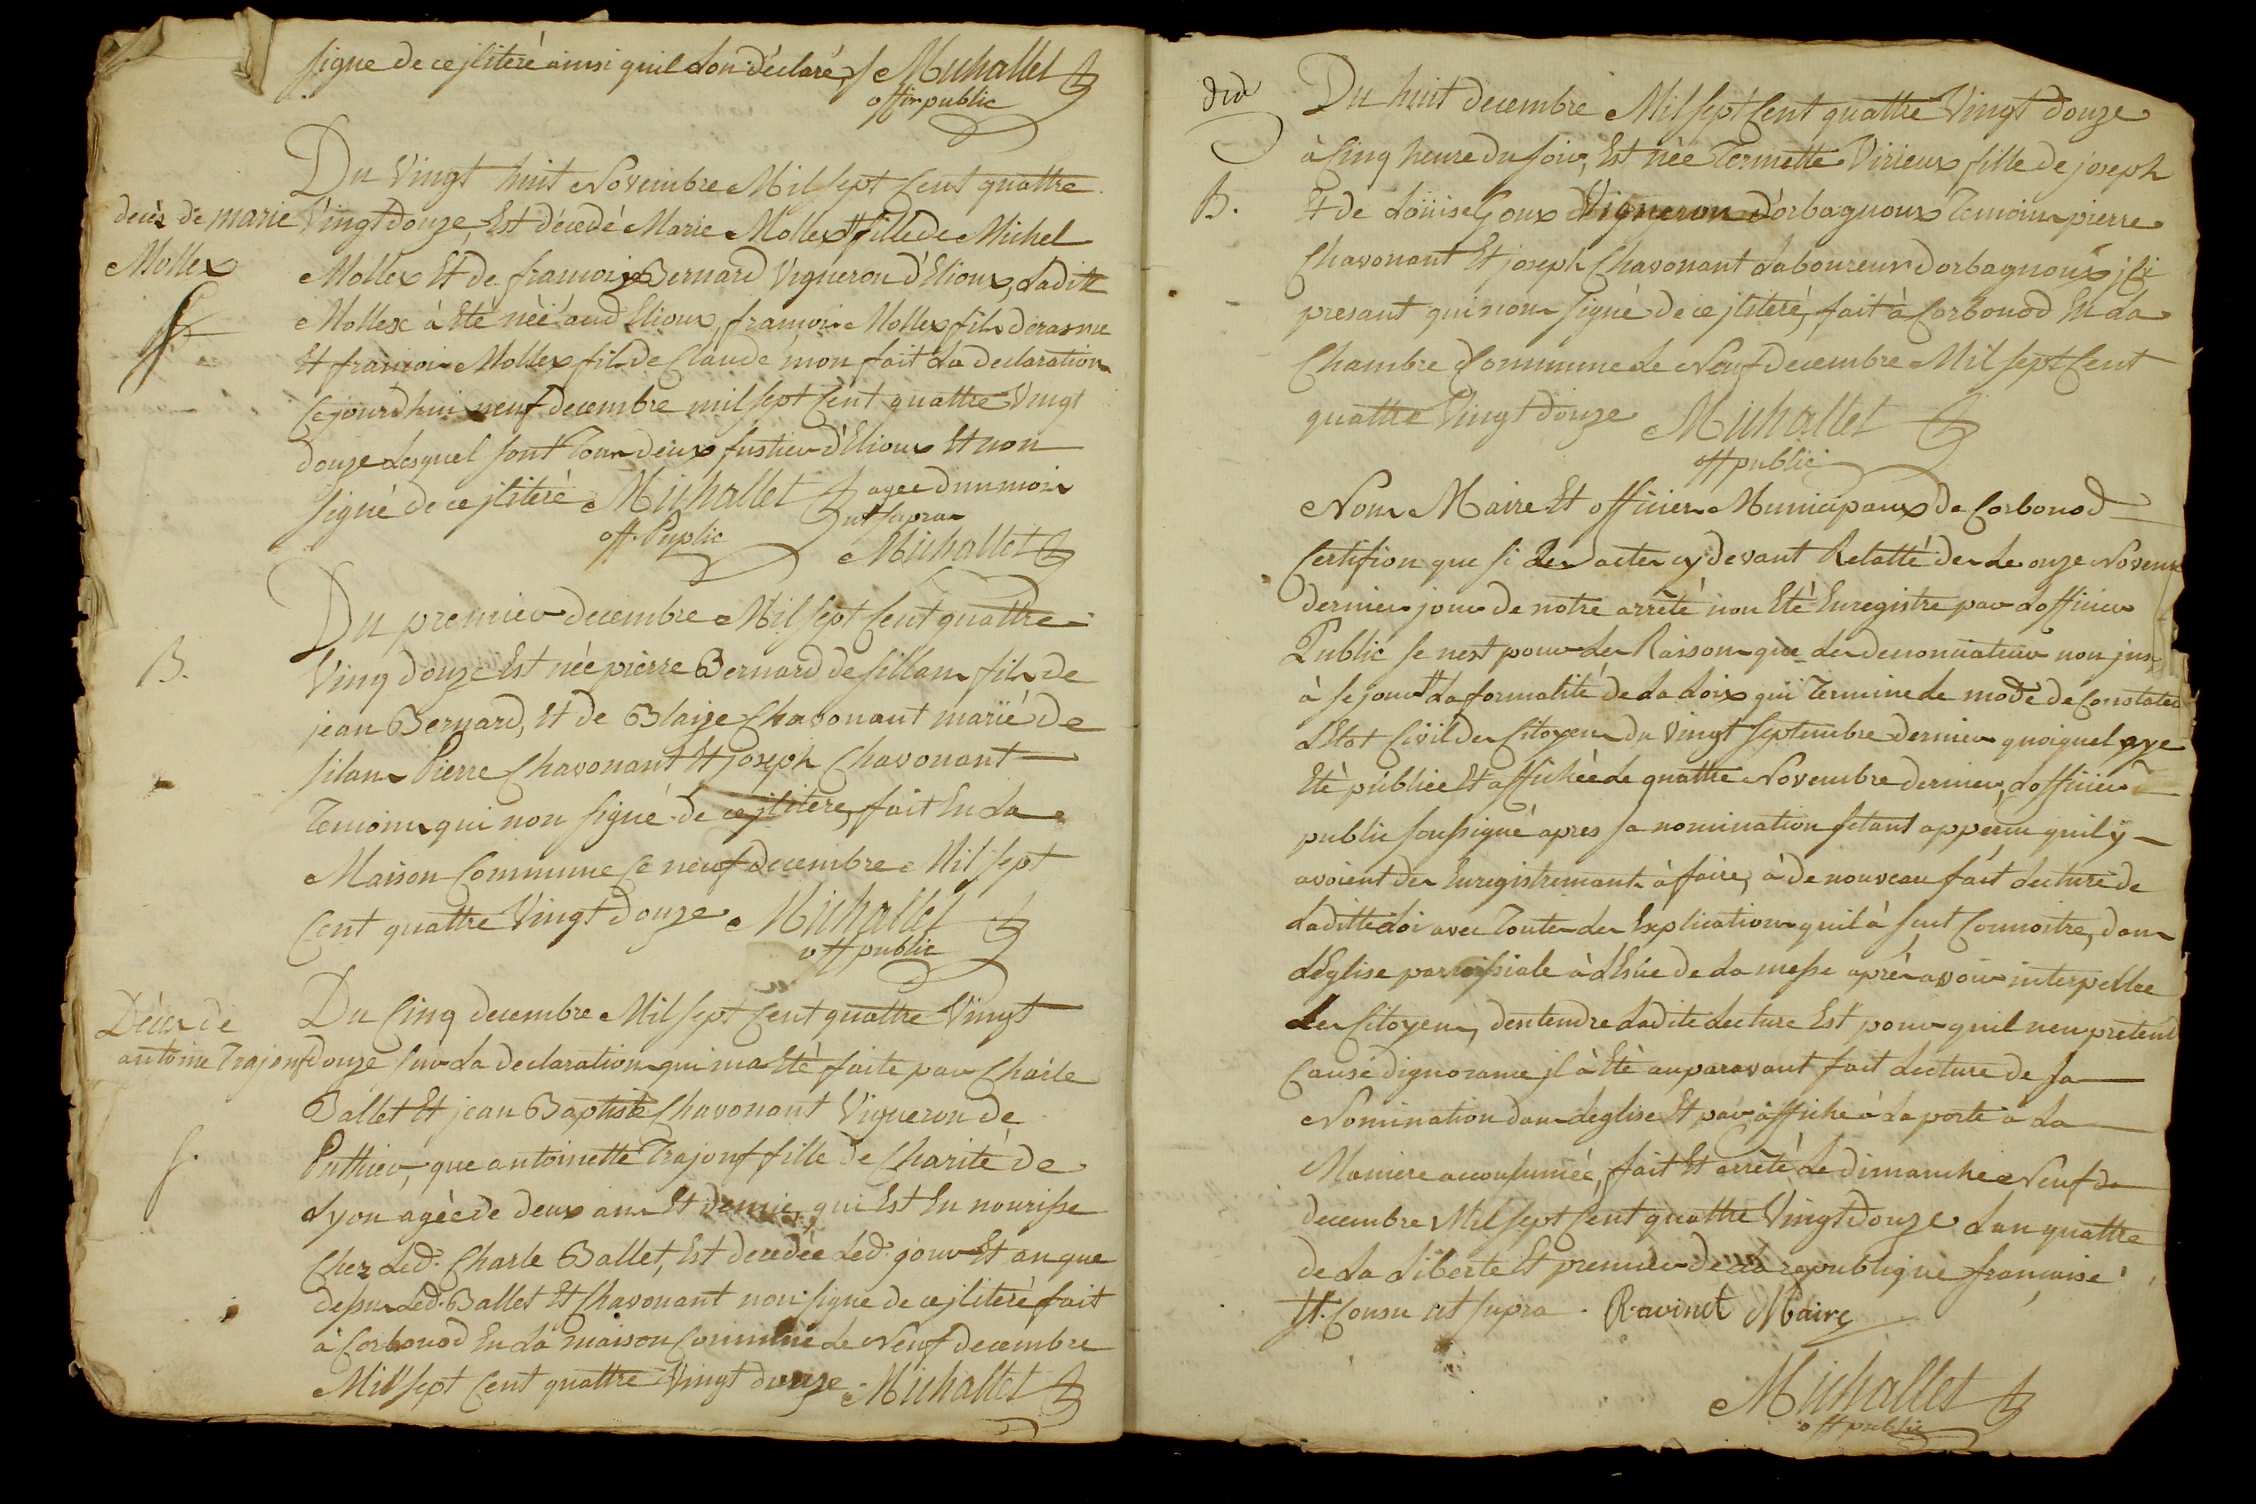 signe de ce jlitéré ainsi quil Lon déclaré, Michallet
offir public
Du Vingt huit Novembre Mil sept Cent quattre
decès de marie
Mollex
Vingt douze, Est décedé Marie Mollex fille de Michel
Mollex Et de francoise Bernard Vigneron d'Elioux, Laditte
Mollex à Eté néé aud Elioux, francois Mollex fils
Et francois Mollex fils de Claude mon fait La declaration
Cejourdhui neuf decembre mil sept Cent quattre Vingt
douze Lesquel sont Tous deux fustier d'Elioux Et non
signé de ce jliteré Michallet agee dun mois
off. Puplic ut supra
Michallet
Du premier decembre Mil sept Cent quattre
B.
Ving douze Est née pierre Bernard de sillans fils de
jean Bernard, Et de Blaize Chavonant marié de
silans Pierre Chavonant Et joseph Chavonant
Temoins qui non signé de ce jlitere, fait En La
Maison Commune Ce neuf decembre Mil sept
Cent quattre Vingt douze Michallet
off public
Décès de
antoine Trajonf
Du Cinq decembre Mil sept Cent quattre Vingt
douze sur La declaration qui ma Eté faite par Charle
Ballet Et jean Baptiste Chavonant Vigneron de
Puthier, que antoinette Trajonf fille de Charité de
f.
Lyon agéé de deux ans Et demie, qui Est En nourisse
Chez Led. Charle Ballet, Est decedée Led. jour Et an que
dessus Led. Ballet Et Chavonant non signe de ce jliteré fait
à Corbonod En La maison Commune Le Neuf decembre
Mil sept Cent quattre Vingt douze Michallet
Du huit decembre Mil sept Cent quattre Vingt douze
à Cinq heure du soir, Est née Termette Virieux fille de joseph
B.
Et de Loüise Goux Vigneron d'orbagnoux Temoins pierre
Chavonant Et joseph Chavonant Laboureur dorbagnoux jci
presant qui non signé de ce jliteré, fait à Corbonod En La
Chambre Commune Le Neuf decembre Mil sept Cent
quattre Vingt douze Michallet
off public
Nous Maire Et officiers Municipaux de Corbonod
Certifion que si Les actes cy devant Relatté des Le onze Novemb
dernier jour de notre arrêté non Eté Enregistre par Lofficier
Public se nest pour Les Raisons que Les denonciateur non jus
à se jour La formalité de La Loix qui Termine Le mode de Constater
LEtat Civil des Citoyens du Vingt septembre dernier quoiquel aye
Eté publiée Et affichée Le quattre Novembre dernier, Lofficier
public soussigné apres sa nomination setant apperçu quil y
avoient des Enregistremants à faire, à de nouveau fait Lecture de
Laditte Loi avec Toutes Les Explications quil à sut Connoitre, dans
LEglise parroissiale à LEsüe de La messe aprés avoir interpellée
Les Citoyens, dentendre Ladite Lecture Est pour quil nen pretent
Cause dignorance jl à Eté auparavant fait Lecture de sa
Nomination dans Leglise Et par affiche à La porte à La
Maniere accoutumée, fait Et arrêté Le dimanche Neuf de
decembre Mil sept Cent quattre Vingt douze Lan quattre
de La Liberte Et premier de La republique francaise
ut supra. Ravinet Maire
Michallet
off public